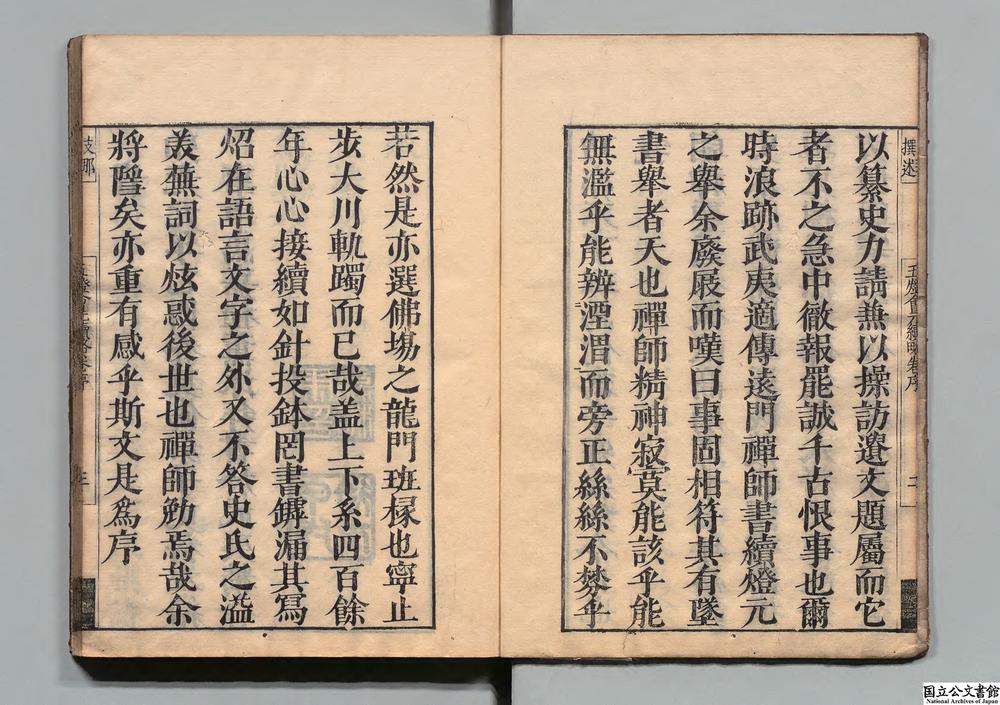 以纂史力請兼以操訪遼文題屬而它
者不之急中徹報罷誠千古恨事也爾
時浪跡武夷適傳遠門禪師書續燈元
之舉余廢屐而嘆曰事固相符其有墜
書舉者天也禪師精神寂寞能該乎能
無濫乎能辨湮渭而旁正絲絲不棼乎
若然是亦選佛場之龍門班椽也寧止
步大川軌躅而已哉盖上下系四百餘
年心心接續如針投鉢罔書罅漏其寫
炤在語言文字之外又不答史氏之溢
美蕪詞以炫惑後世也禪師勉焉哉余
將隱矣亦重有感乎斯文是爲序
撰述
五燈會元續略卷序
二
支那
国立公文書館
National Archives of Japan